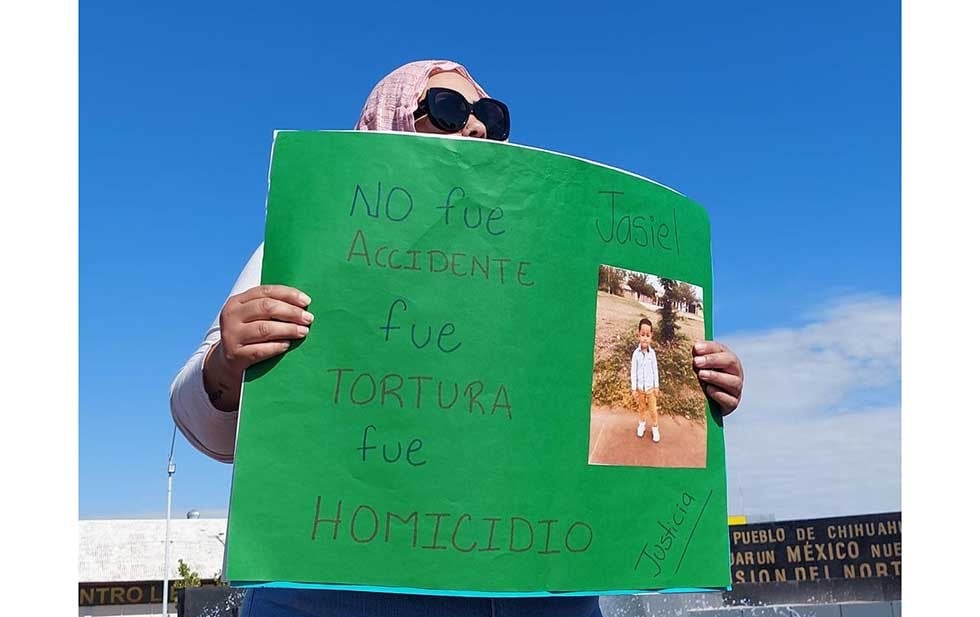 NO fue
ACCIDENTE
fue
TORTURA
fue
HOMICIDIO
Jasiel
Justicia
PUEBLO DE CHIHUAH
DAR UN MÉXICO NUE
SION DEL NORT